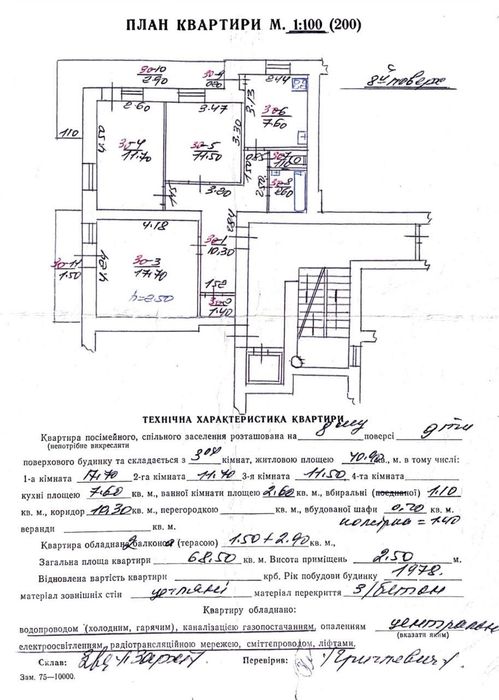 ПЛАН КВАРТИРИ М. 1:100 (200)
8й поверх
30-10
2.90
30-9
0.20
2.60
3.47
2.44
3.13
30-6
7.60
110
4.50
30-4
11.70
30-5
11.50
3.30
0.85
1.50
30-7
1.10
2.50
30-8
2.60
1.51
3.20
4.18
2.84
30-1
10.30
30-11
1.50
4.21
30-3
17.70
h=2.50
1.52
30-2
1.40
ТЕХНІЧНА ХАРАКТЕРИСТИКА КВАРТИРИ
Квартира посімейного, спільного заселення розташована на 8му поверсі 9ти
(непотрібне викреслити
поверхового будинку та складається з 3ох кімнат, житловою площею 40.90 кв., м. в тому числі:
1-а кімната 17.70 2-га кімната 11.70 3-я кімната 11.50 4-та кімната
кухні площею 7.60 кв. м., ванної кімнати площею 2.60 кв. м., вбиральні (поєднаної) 1.10
кв. м., коридор 10.30 кв. м., перегородкою кв. м., вбудованої шафи 0.20 кв. м.
веранди кв. м. комірка = 1.40
Квартира обладнана 2 балкона (терасою) 1.50 + 2.90 кв. м.,
Загальна площа квартири 68.50 кв. м. Висота приміщень 2.50 м.
Відновлена вартість квартири крб. Рік побудови будинку 1978.
матеріал зовнішніх стін цегляні матеріал перекриття з/бетон
Квартиру обладнано:
водопроводом (холодним, гарячим), каналізацією газопостачанням, опаленням центральне
(вказати яким)
електроосвітленням, радіотрансляційною мережею, сміттєпроводом, ліфтами.
Склав: Перевірив:
Зам. 75—10000.